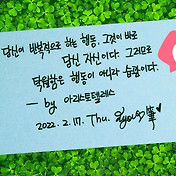 당신이 반복적으로 하는 행동, 그것이 바로
당신 자신이다. 그러므로
탁월함은 행동이 아니라 습관이다.
- by 아리스토텔레스
2022. 2. 17. Thu.